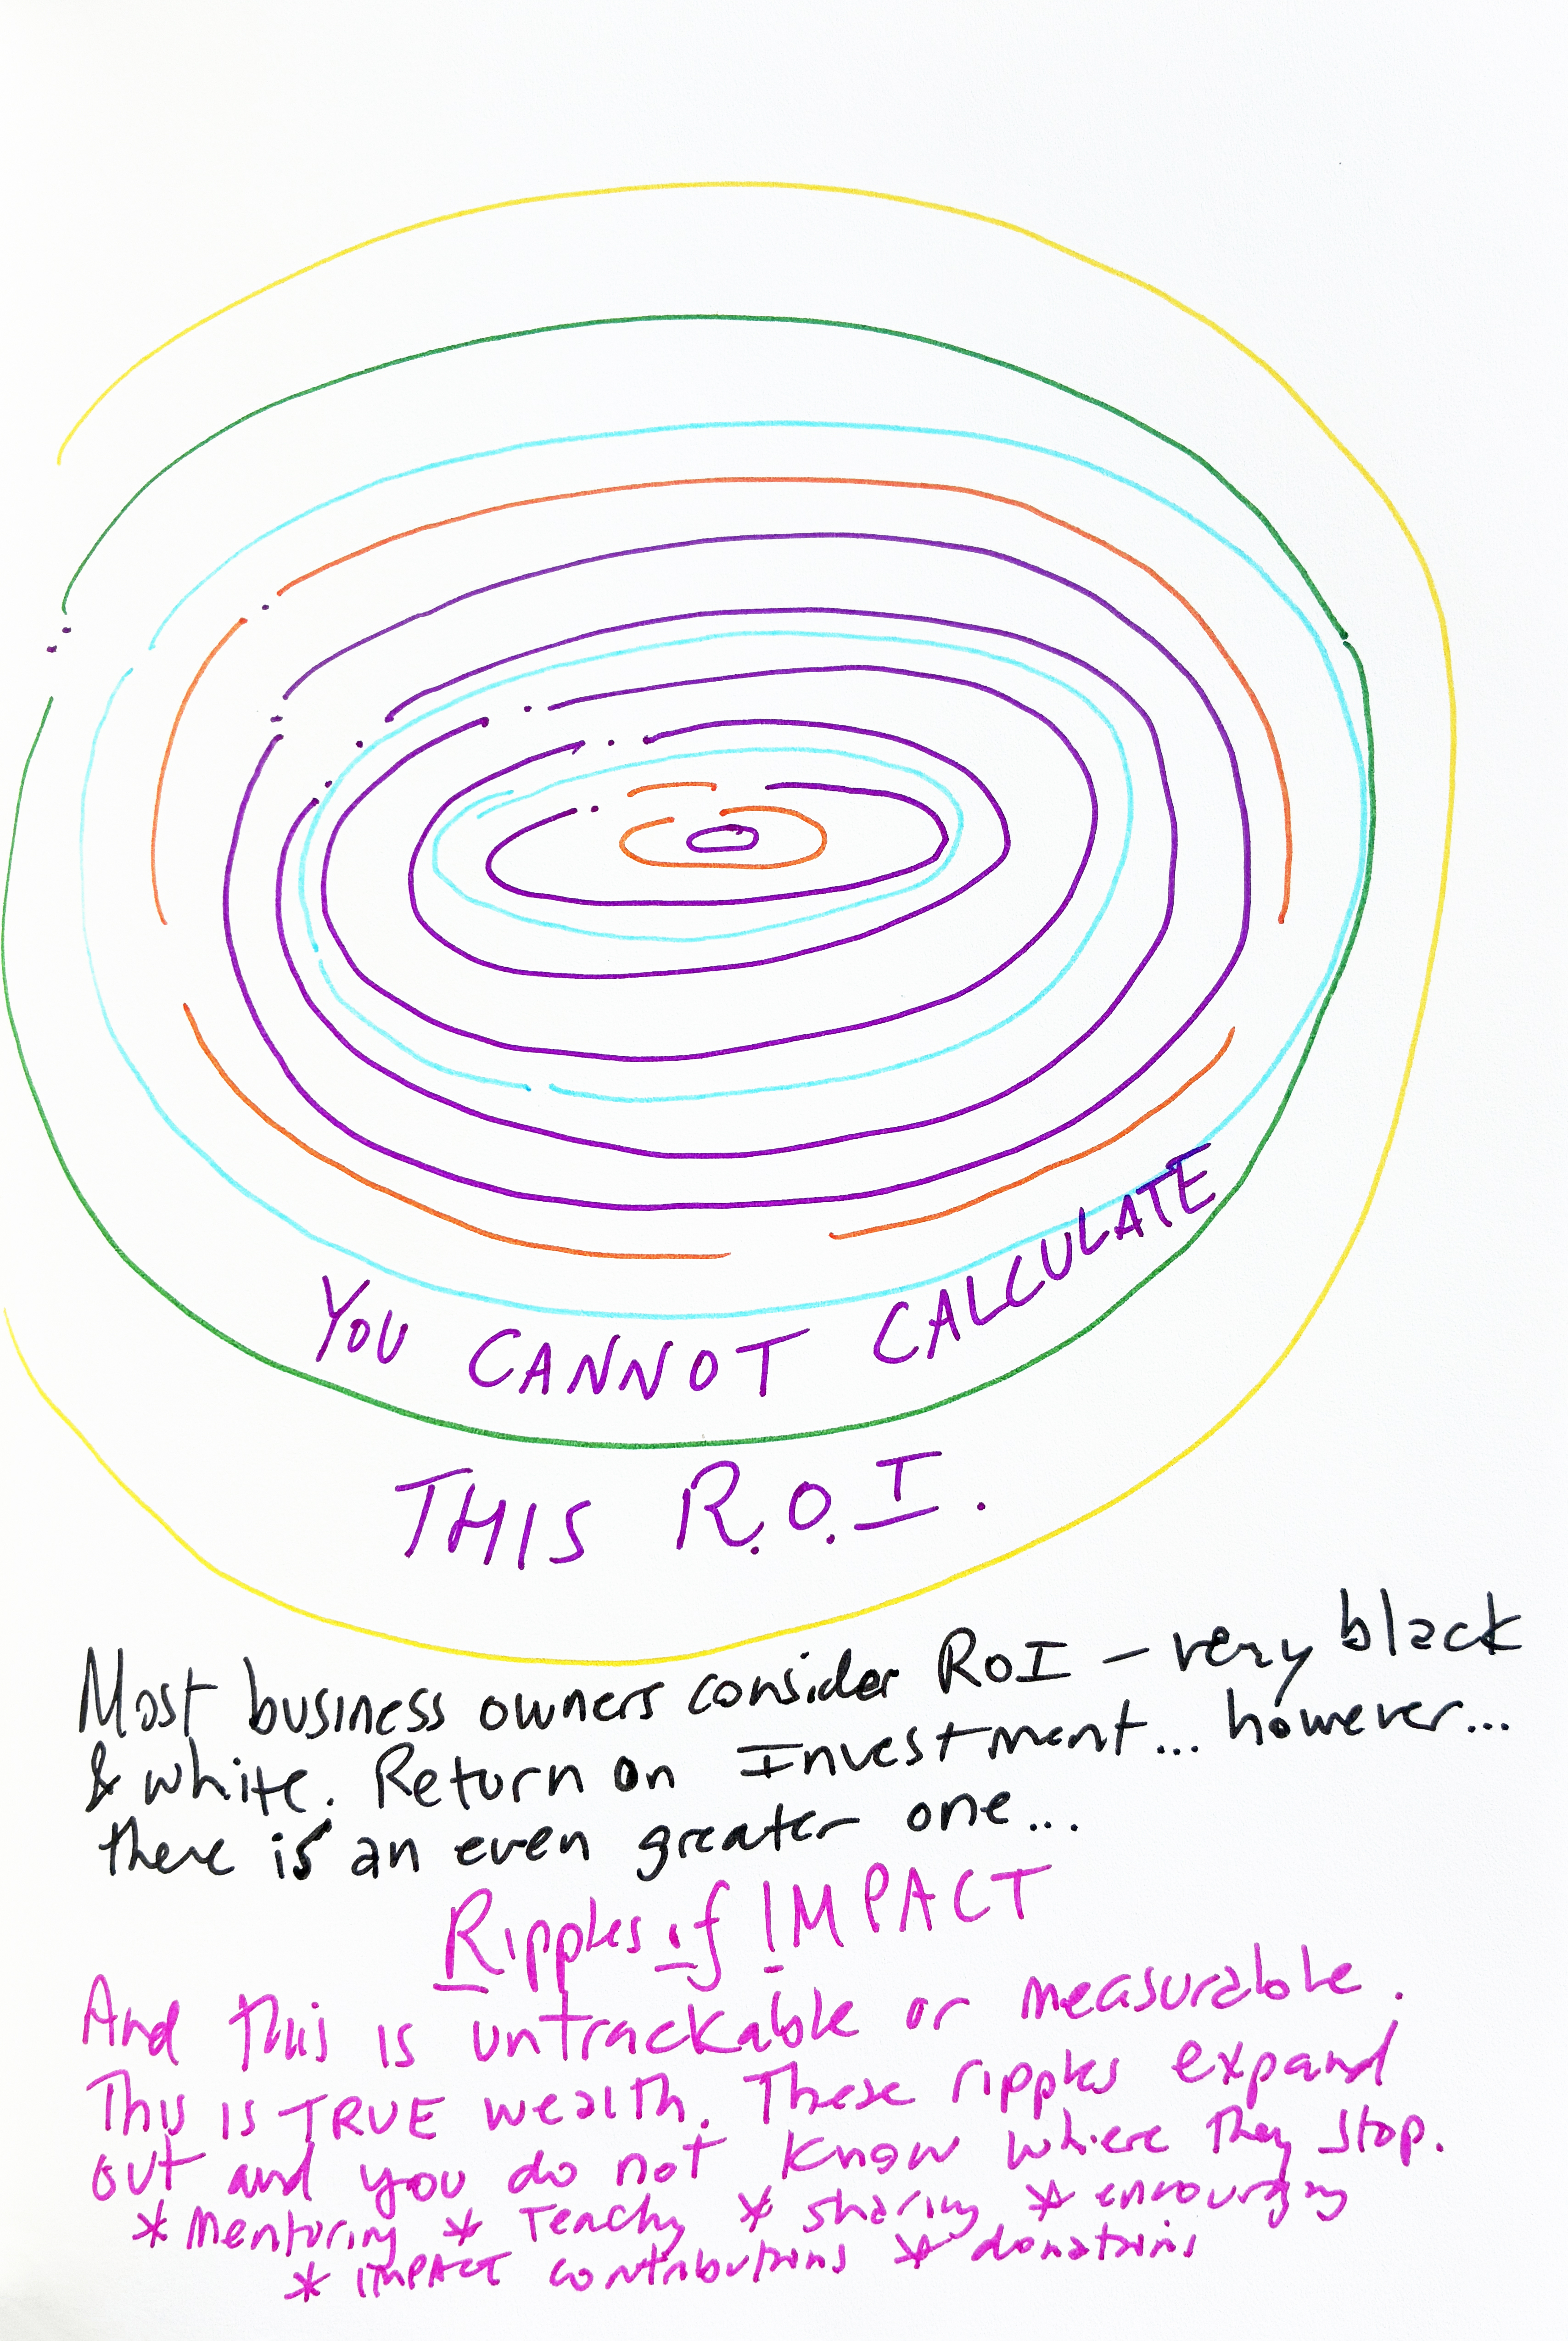 YOU CANNOT CALCULATE
THIS R.O.I.
Most business owners consider ROI - very black
& white. Return on Investment... however...
there is an even greater one...
Ripples of IMPACT
And this is untrackable or measurable.
This is TRUE wealth. These ripples expand
out and you do not know where they stop.
* Mentoring * Teachg * sharing * encouraging
* IMPACT contributions * donations